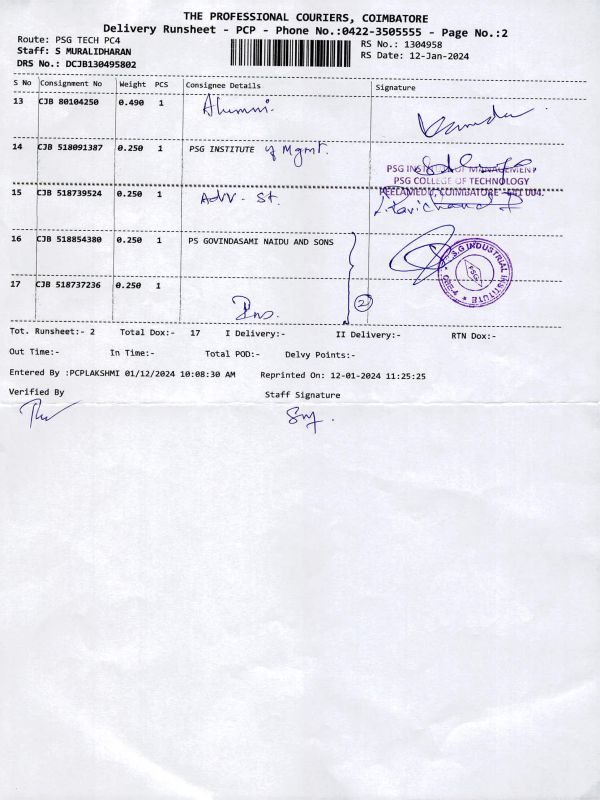 THE PROFESSIONAL COURIERS, COIMBATORE
Delivery Runsheet - PCP - Phone No.:0422-3505555 - Page No.:2
Route: PSG TECH PC4
RS No.: 1304958
Staff: S MURALIDHARAN
RS Date: 12-Jan-2024
DRS No.: DCJB130495802
S No Consignment No Weight PCS Consignee Details Signature
13 CJB 80104250 0.490 1 Alumni.
14 CJB 518091387 0.250 1 PSG INSTITUTE of Mgmt.
PSG INSTITUTE OF MANAGEMENT
PSG COLLEGE OF TECHNOLOGY
PEELAMEDU, COIMBATORE - 641 004.
15 CJB 518739524 0.250 1 Adv. St.
16 CJB 518854380 0.250 1 PS GOVINDASAMI NAIDU AND SONS
P.S.G INDUSTRIAL INSTITUTE
PSG
CBE-4
17 CJB 518737236 0.250 1
2
Tot. Runsheet:- 2 Total Dox:- 17 I Delivery:- II Delivery:- RTN Dox:-
Out Time:- In Time:- Total POD:- Delvy Points:-
Entered By :PCPLAKSHMI 01/12/2024 10:08:30 AM Reprinted On: 12-01-2024 11:25:25
Verified By Staff Signature